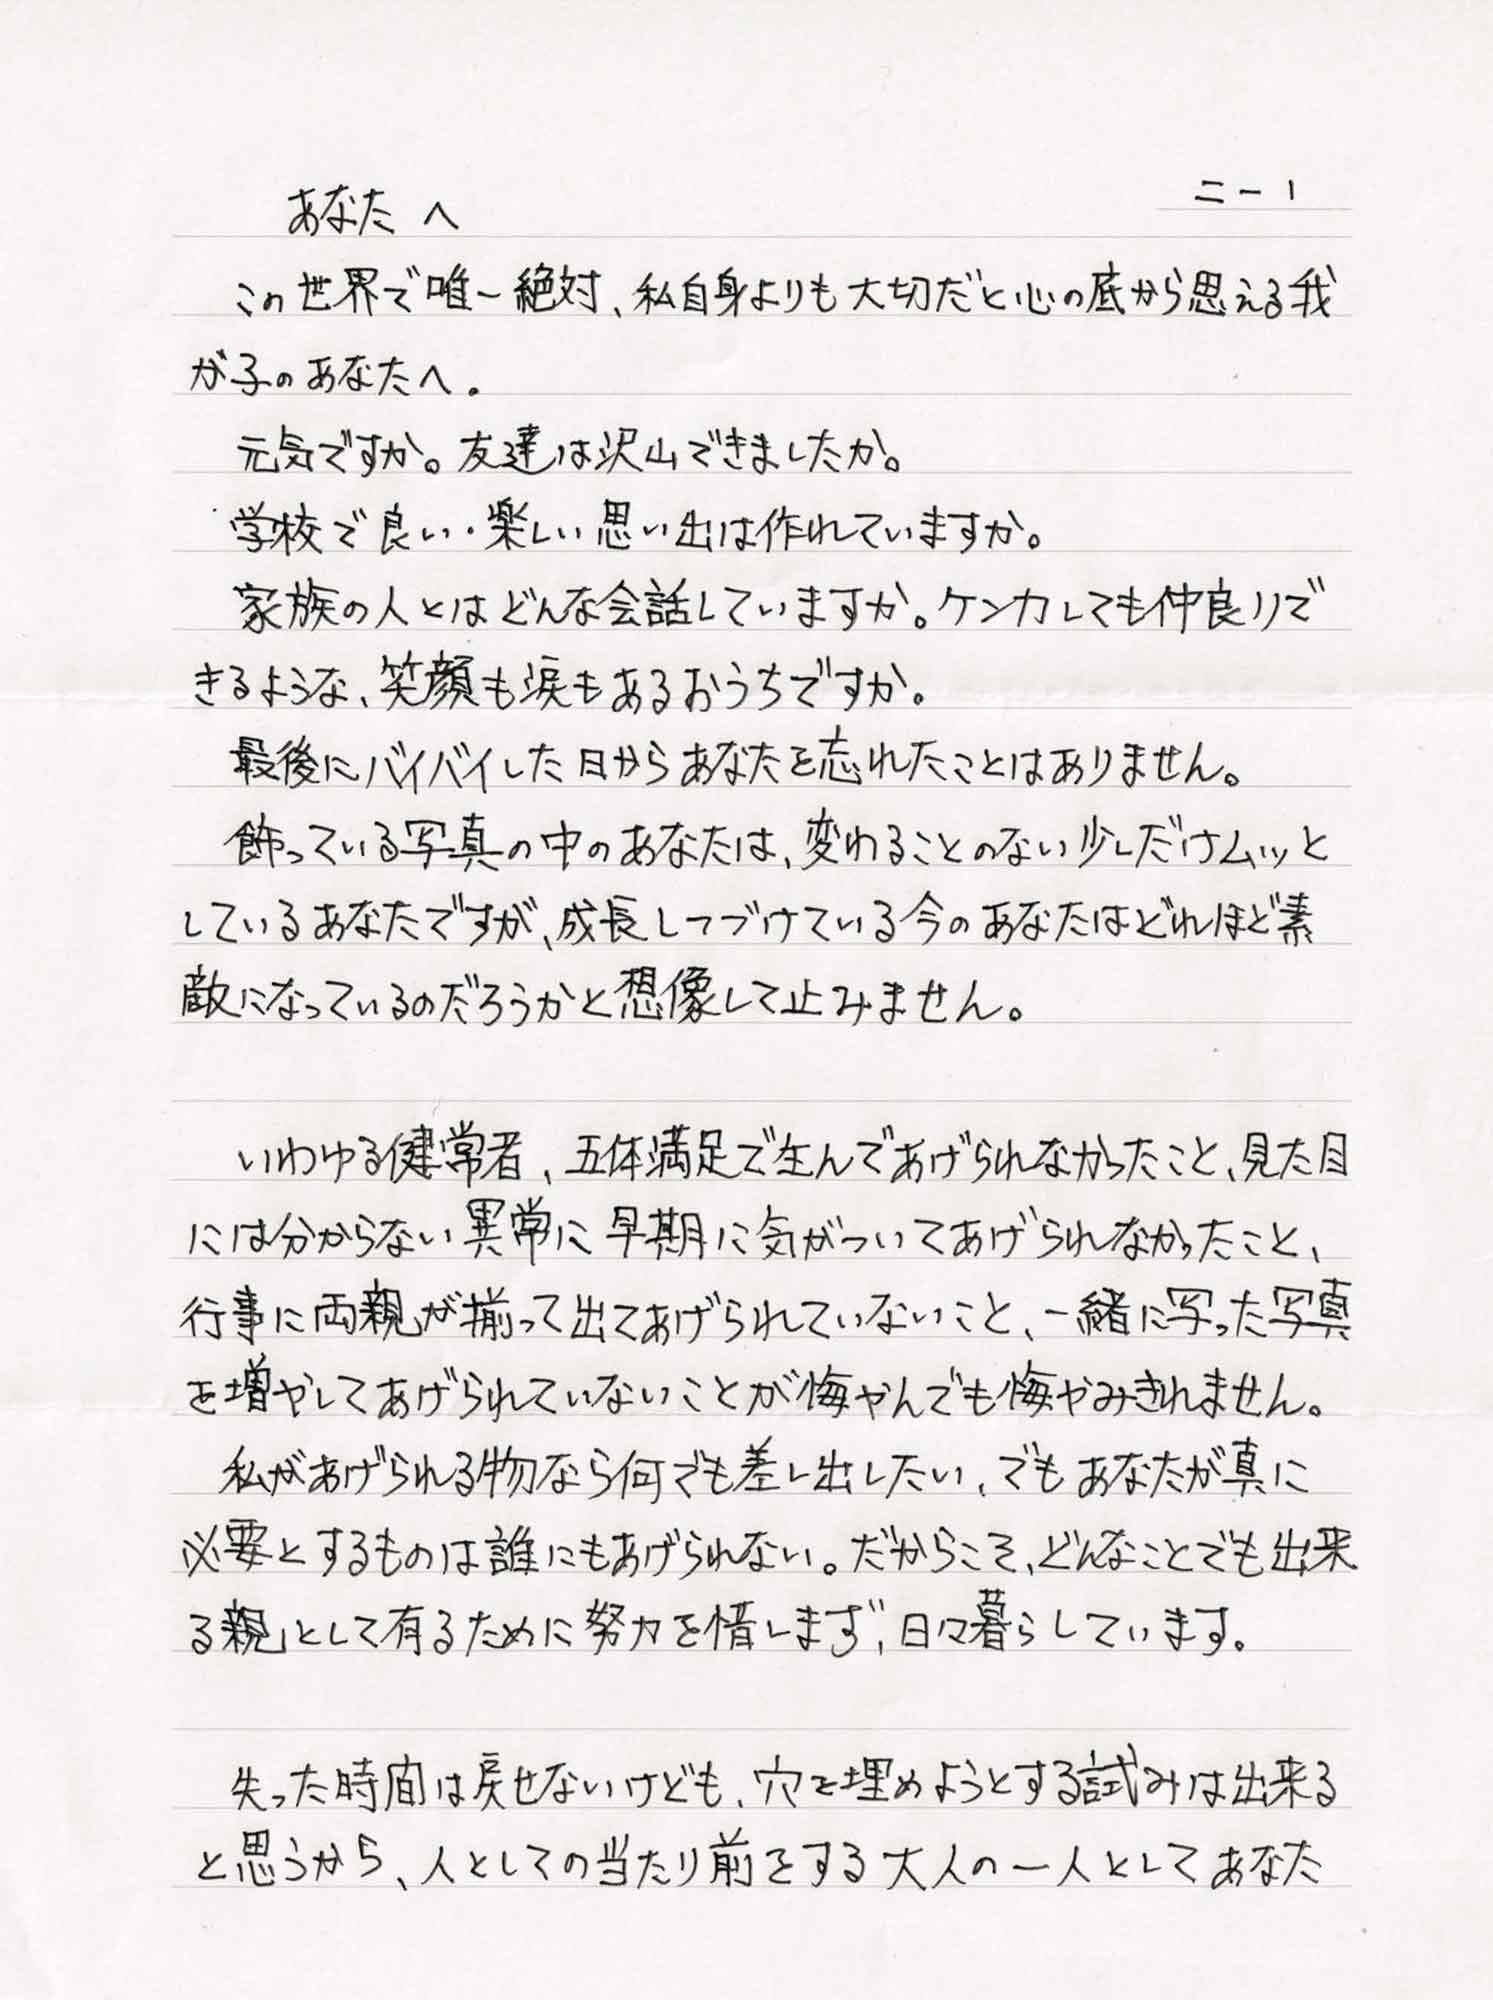 二ー1
あなたへ
この世界で唯一絶対、私自身よりも大切だと心の底から思える我
が子のあなたへ。
元気ですか。友達は沢山できましたか。
学校で良い・楽しい思い出は作れていますか。
家族の人とはどんな会話していますか。ケンカしても仲良りで
きるような、笑顔も涙もあるおうちですか。
最後にバイバイした日からあなたを忘れたことはありません。
飾っている写真の中のあなたは、変わることのない少しだけムッと
しているあなたですが、成長しつづけている今のあなたはどれほど素
敵になっているのだろうかと想像して止みません。
いわゆる健常者、五体満足で生んであげられなかったこと、見た目
には分からない異常に早期に気がついてあげられなかったこと、
行事に両親が揃って出てあげられていないこと、一緒に写った写真
を増やしてあげられていないことが悔やんでも悔やみきれません。
私があげられる物なら何でも差し出したい、でもあなたが真に
必要とするものは誰にもあげられない。だからこそ、どんなことでも出来
る親」として有るために努力を惜しまず、日々暮らしています。
失った時間は戻せないけども、穴を埋めようとする試みは出来る
と思うから、人としての当たり前をする大人の一人としてあなた